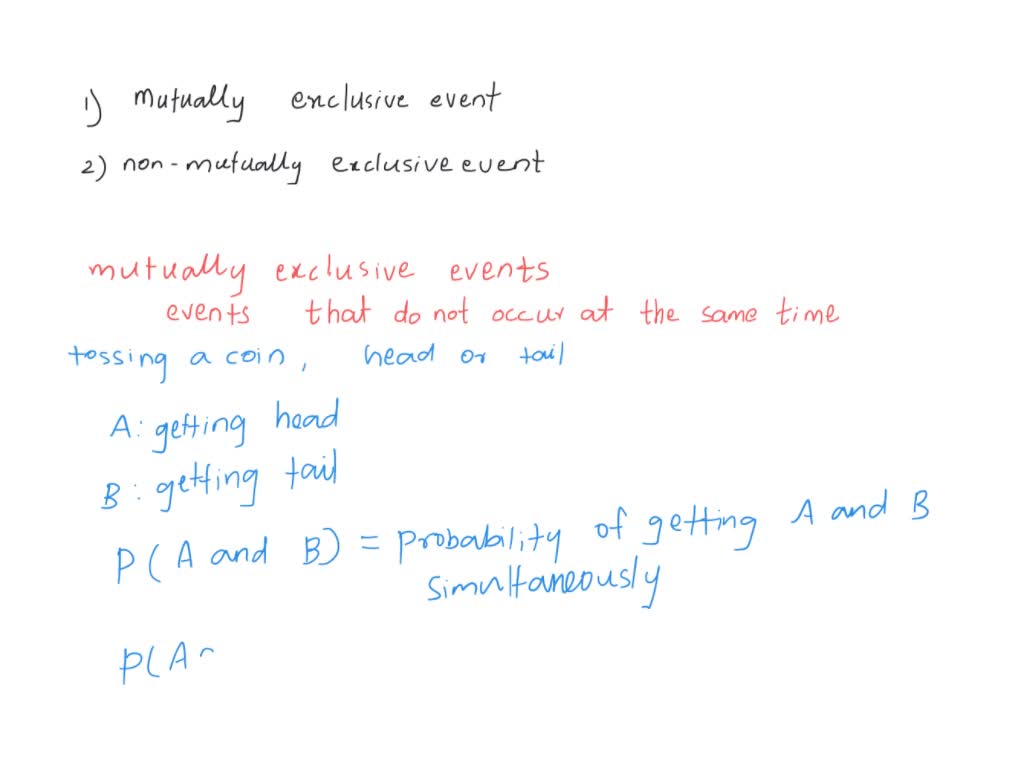 1) mutually exclusive event
2) non-mutually exclusive event
mutually exclusive events
events that do not occur at the same time
tossing a coin, head or tail
A: getting head
B: getting tail
P(A and B) = probability of getting A and B
simultaneously
P(A